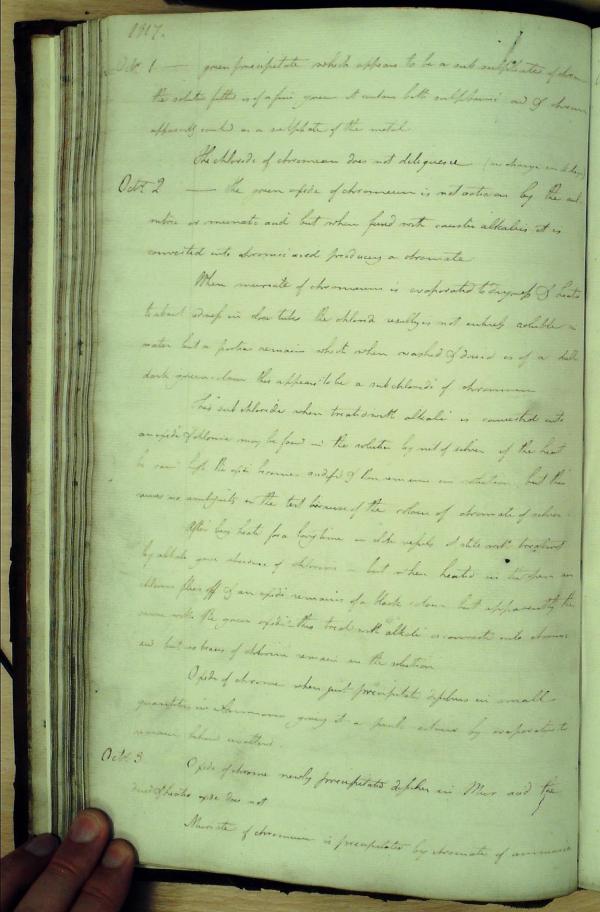 1817.
Oct 1 — green precipitate which appears to be a sub sulphate of chrom
the solution filtered is of a fine green it contains both sulphuric acid & chromium
apparently as a sulphate of the metal
The chloride of chromeum does not deliquesce (no change in 4 days)
Oct 2 — the green oxide of chromeum is not acted on by the sul
nitric or muriatic acid but when fused with caustic alkalies it is
converted into chromic acid producing a chromate
When muriate of chromeum is evaporated to dryness & heated
to redness in close tubes the chloride resulting is not entirely soluble in
water but a portion remains which when washed & dried is of a dull
dark green colour this appears to be a subchloride of chromeum
This subchloride when treated with alkali is converted into
an oxide & chlorine may be found in the solution by nit of silver if the heat
be raised high the oxide becomes acidified & then remains in solution but this
causes no ambiguity in the test because of the colour of chromate of silver
After being heated for a long time in close vessels it still with
by alkali gave evidence of chlorine — but when heated in the open air
chlorine flies off & an oxide remains of a black colour but apparently the
same with the green oxide this treated with alkali is converted into chromic
acid but no traces of chlorine remain in the solution
Oxide of chrome when just precipitated dissolves in small
quantities in Ammonia giving it a colour by evaporation it
remains behind
Oct 3 Oxide of chrome newly precipitated dissolves in Mur acid the
dried & heated oxide does not
Muriate of chromeum is precipitated by chromate of ammonia